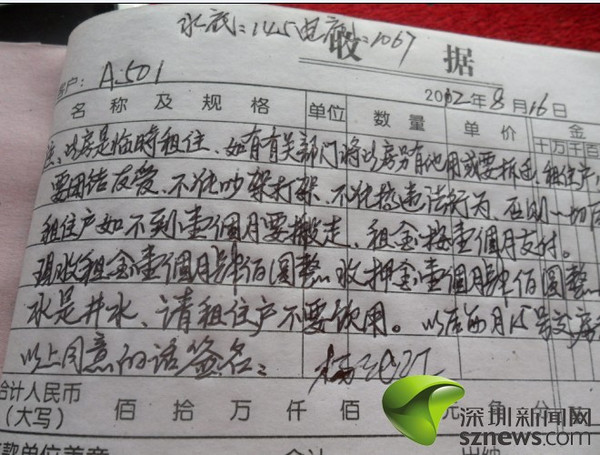 水底:145电底:1067
收据
户: A.501
2012年8月16日
名称及规格 单位 数量 单价 金
十万千百
以房是临時租住、如有有关部门将以房另有他用或要拆迁、租住户
要团结友爱、不能吵架打架、不能搞违法行为、否则一切后
租住户如不到壹個月要搬走、租金按壹個月支付。
现收租金壹個月肆佰圆整 收押金壹個月肆佰圆整
水是井水、请租住户不要饮用。以后每月15号交房
以上同意的话签名:
合计人民币
(大写)
佰 拾 万 仟 佰 元 角 分
深圳新闻网
sznews.com
款单位盖章 会计 出纳